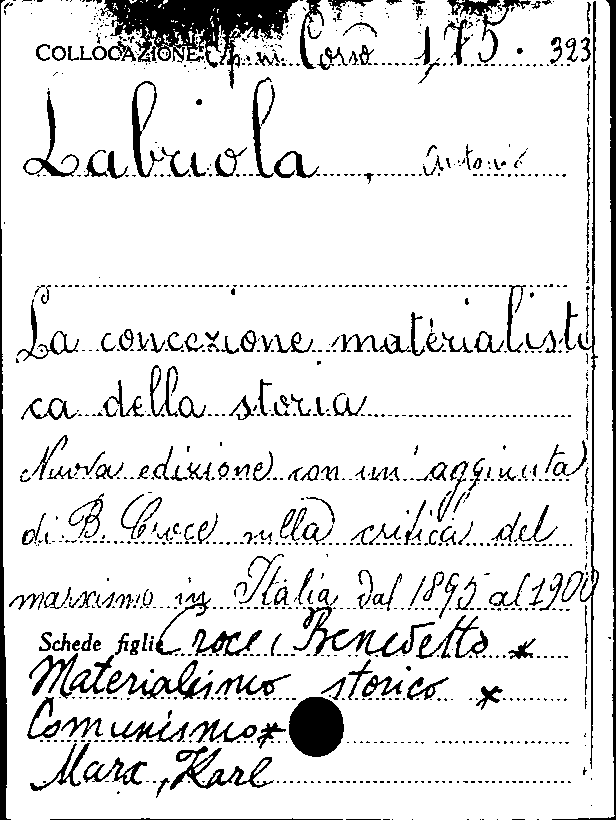 COLLOCAZIONE Op. m. Corso 175. 323
Labriola, Antonio
La concezione materialisti
ca della storia
Nuova edizione con un' aggiunta
di B. Croce sulla critica del
marxismo in Italia dal 1895 al 1900
Schede figlie Croce, Benedetto *
Materialismo storico *
Comunismo *
Marx, Karl